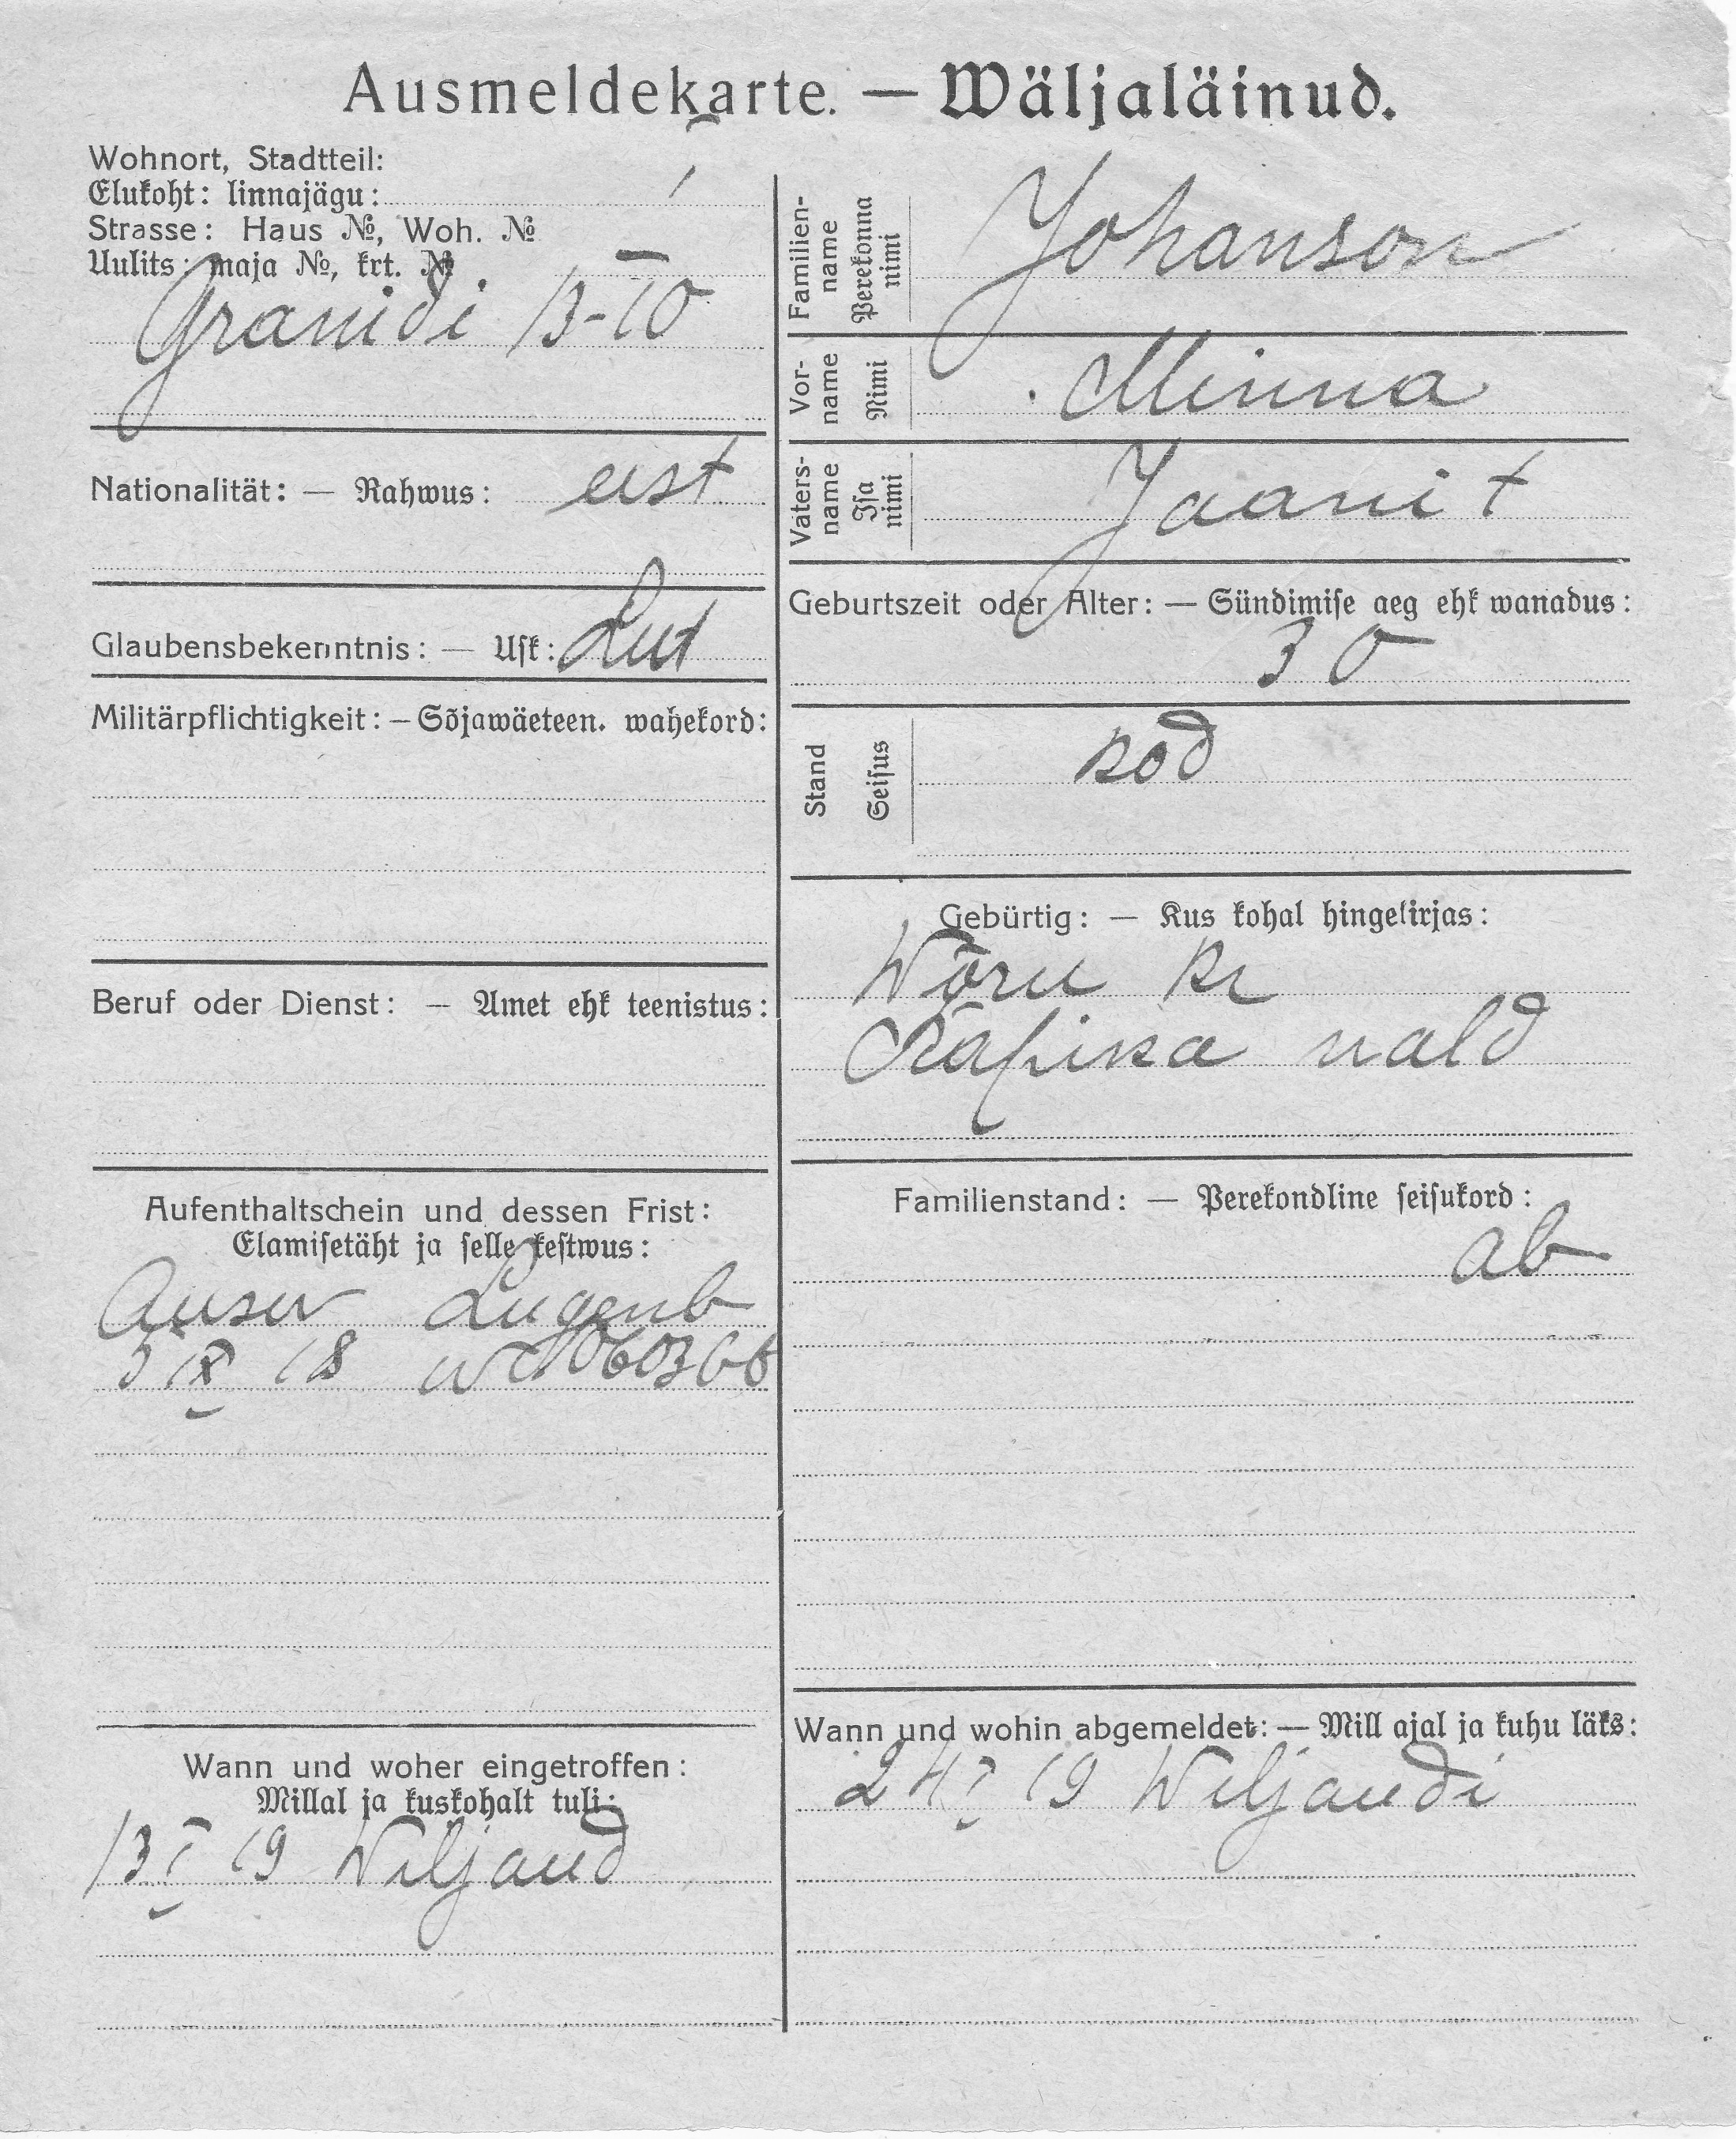 Ausmeldekarte. — Wäljaläinud.
Wohnort, Stadtteil:
Elukoht: linnajägu:
Strasse: Haus №, Woh. №
Uulits: maja №, krt. №
Granidi 13-10
Nationalität: — Rahwus: eest
Glaubensbekenntnis: — Usk: Lut
Militärpflichtigkeit: — Sõjawäeteen. wahekord:
Beruf oder Dienst: — Amet ehk teenistus:
Aufenthaltschein und dessen Frist:
Elamisetäht ja selle kestwus:
Ausw Lugenb
5 IX 18
Wann und woher eingetroffen:
Millal ja kuskohalt tuli:
13 I 19 Wiljand
Familien-
name
Perekonna
nimi
Johanson
Vor-
name
Nimi
Minna
Vaters-
name
Isa
nimi
Jaani t
Geburtszeit oder Alter: — Sündimise aeg ehk wanadus:
30
Stand
Seisus
kod
Gebürtig: — Kus kohal hingekirjas:
Wõru kr
Räpina vald
Familienstand: — Perekondline seisukord:
ab
Wann und wohin abgemeldet: — Mill ajal ja kuhu läks:
24 I 19 Wiljandi